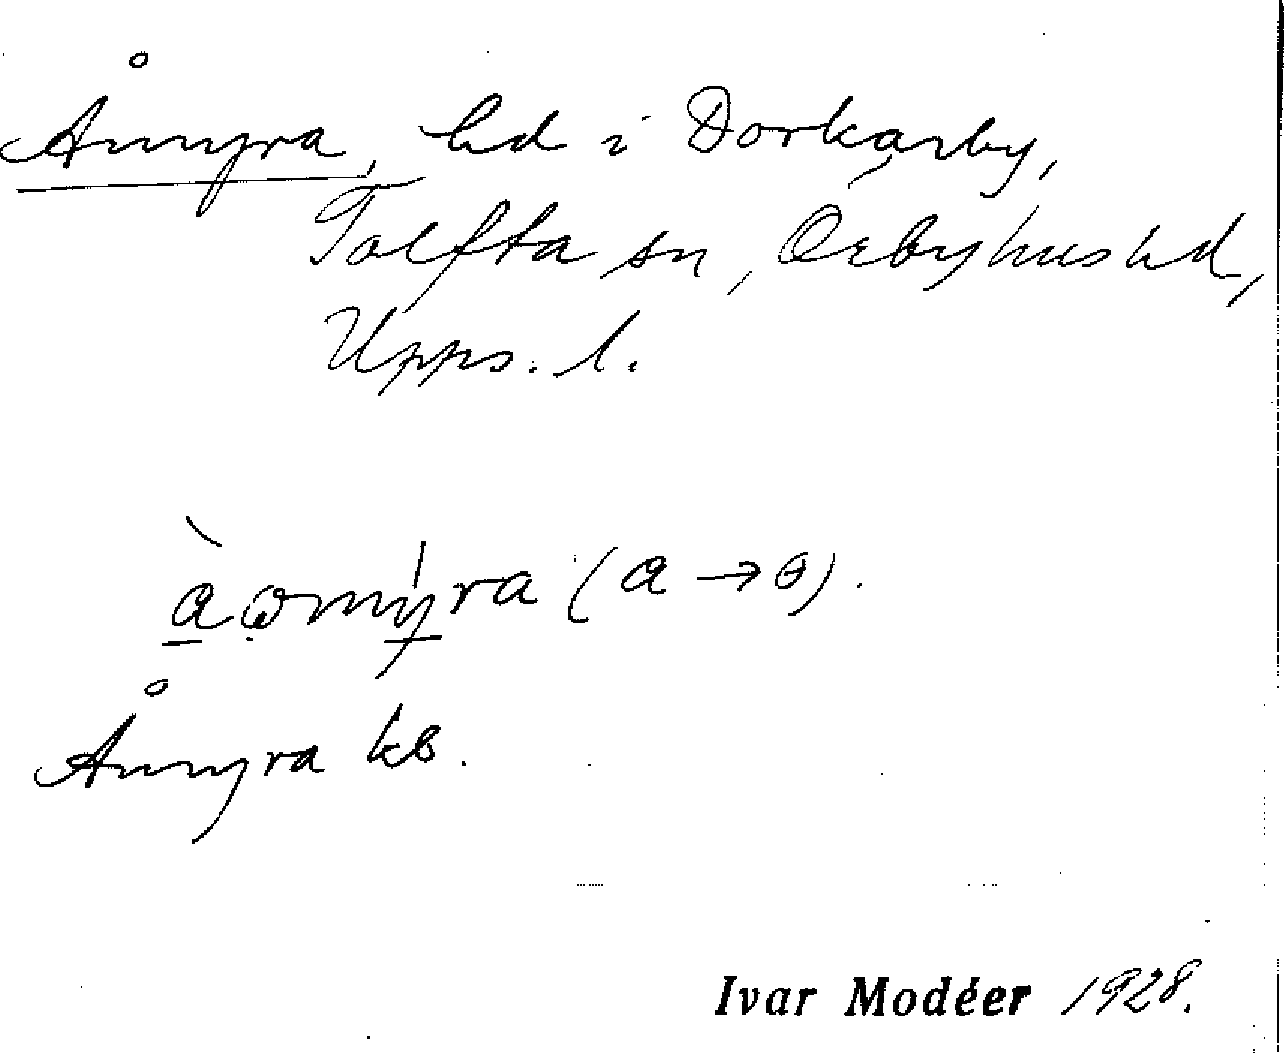 Åmyra, hd i Dorkarby,
Tolfta sn, Örbyhus hd,
Upps. l.
(a → ɵ).
Åmyra kb.
Ivar Modéer 1928.